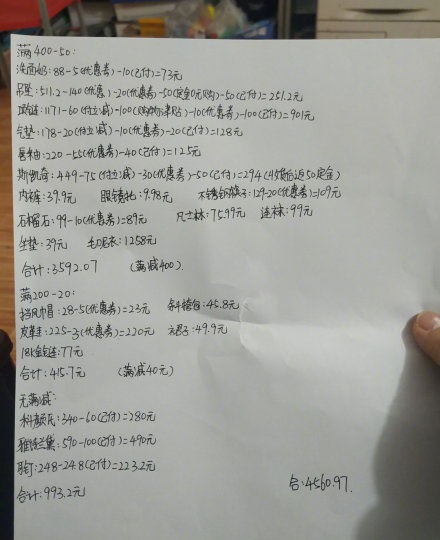 满400-50:
洗面奶:88-5(优惠券)-10(已付)=73元
吊坠:511.2-140(优惠)-20(优惠券)-50(定金0元购)-50(已付)=251.2元
项链:1171-60(付立减)-100(购物津贴)-10(优惠券)-100(已付)=901元
气垫:178-20(付立减)-10(优惠券)-20(已付)=128元
唇釉:220-55(优惠券)-40(已付)=125元
斯凯奇:449-75(付立减)-30(优惠券)-50(已付)=294(付尾后返50定金)
内裤:39.9元 眼镜托:9.98元 不锈钢筷子:129-20(优惠券)=109元
石榴石:99-10(优惠券)=89元 凡士林:75.99元 连裤:99元
坐垫:39元 毛呢衣:1258元
合计:3592.07 (满减400)
满200-20:
挡风帽:28-5(优惠券)=23元 斜挎包:45.8元
皮鞋:225-3(优惠券)=220元 49.9元
18k金链:77元
合计:415.7元 (满减40元)
无满减:
科颜氏:340-60(已付)=280元
雅诗兰黛:590-100(已付)=490元
耳钉:248-24.8(已付)=223.2元
合计:993.2元
合:4560.97.